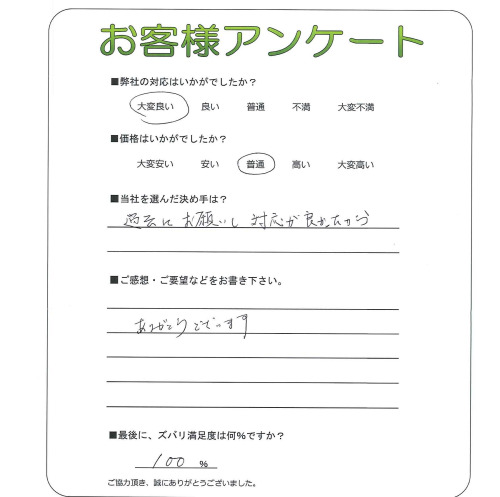 お客様アンケート
■弊社の対応はいかがでしたか？
大変良い 良い 普通 不満 大変不満
■価格はいかがでしたか？
大変安い 安い 普通 高い 大変高い
■当社を選んだ決め手は？
過去にお願いし対応が良かったから
■ご感想・ご要望などをお書き下さい。
ありがとうございます
■最後に、ズバリ満足度は何%ですか？
100 %
ご協力頂き、誠にありがとうございました。